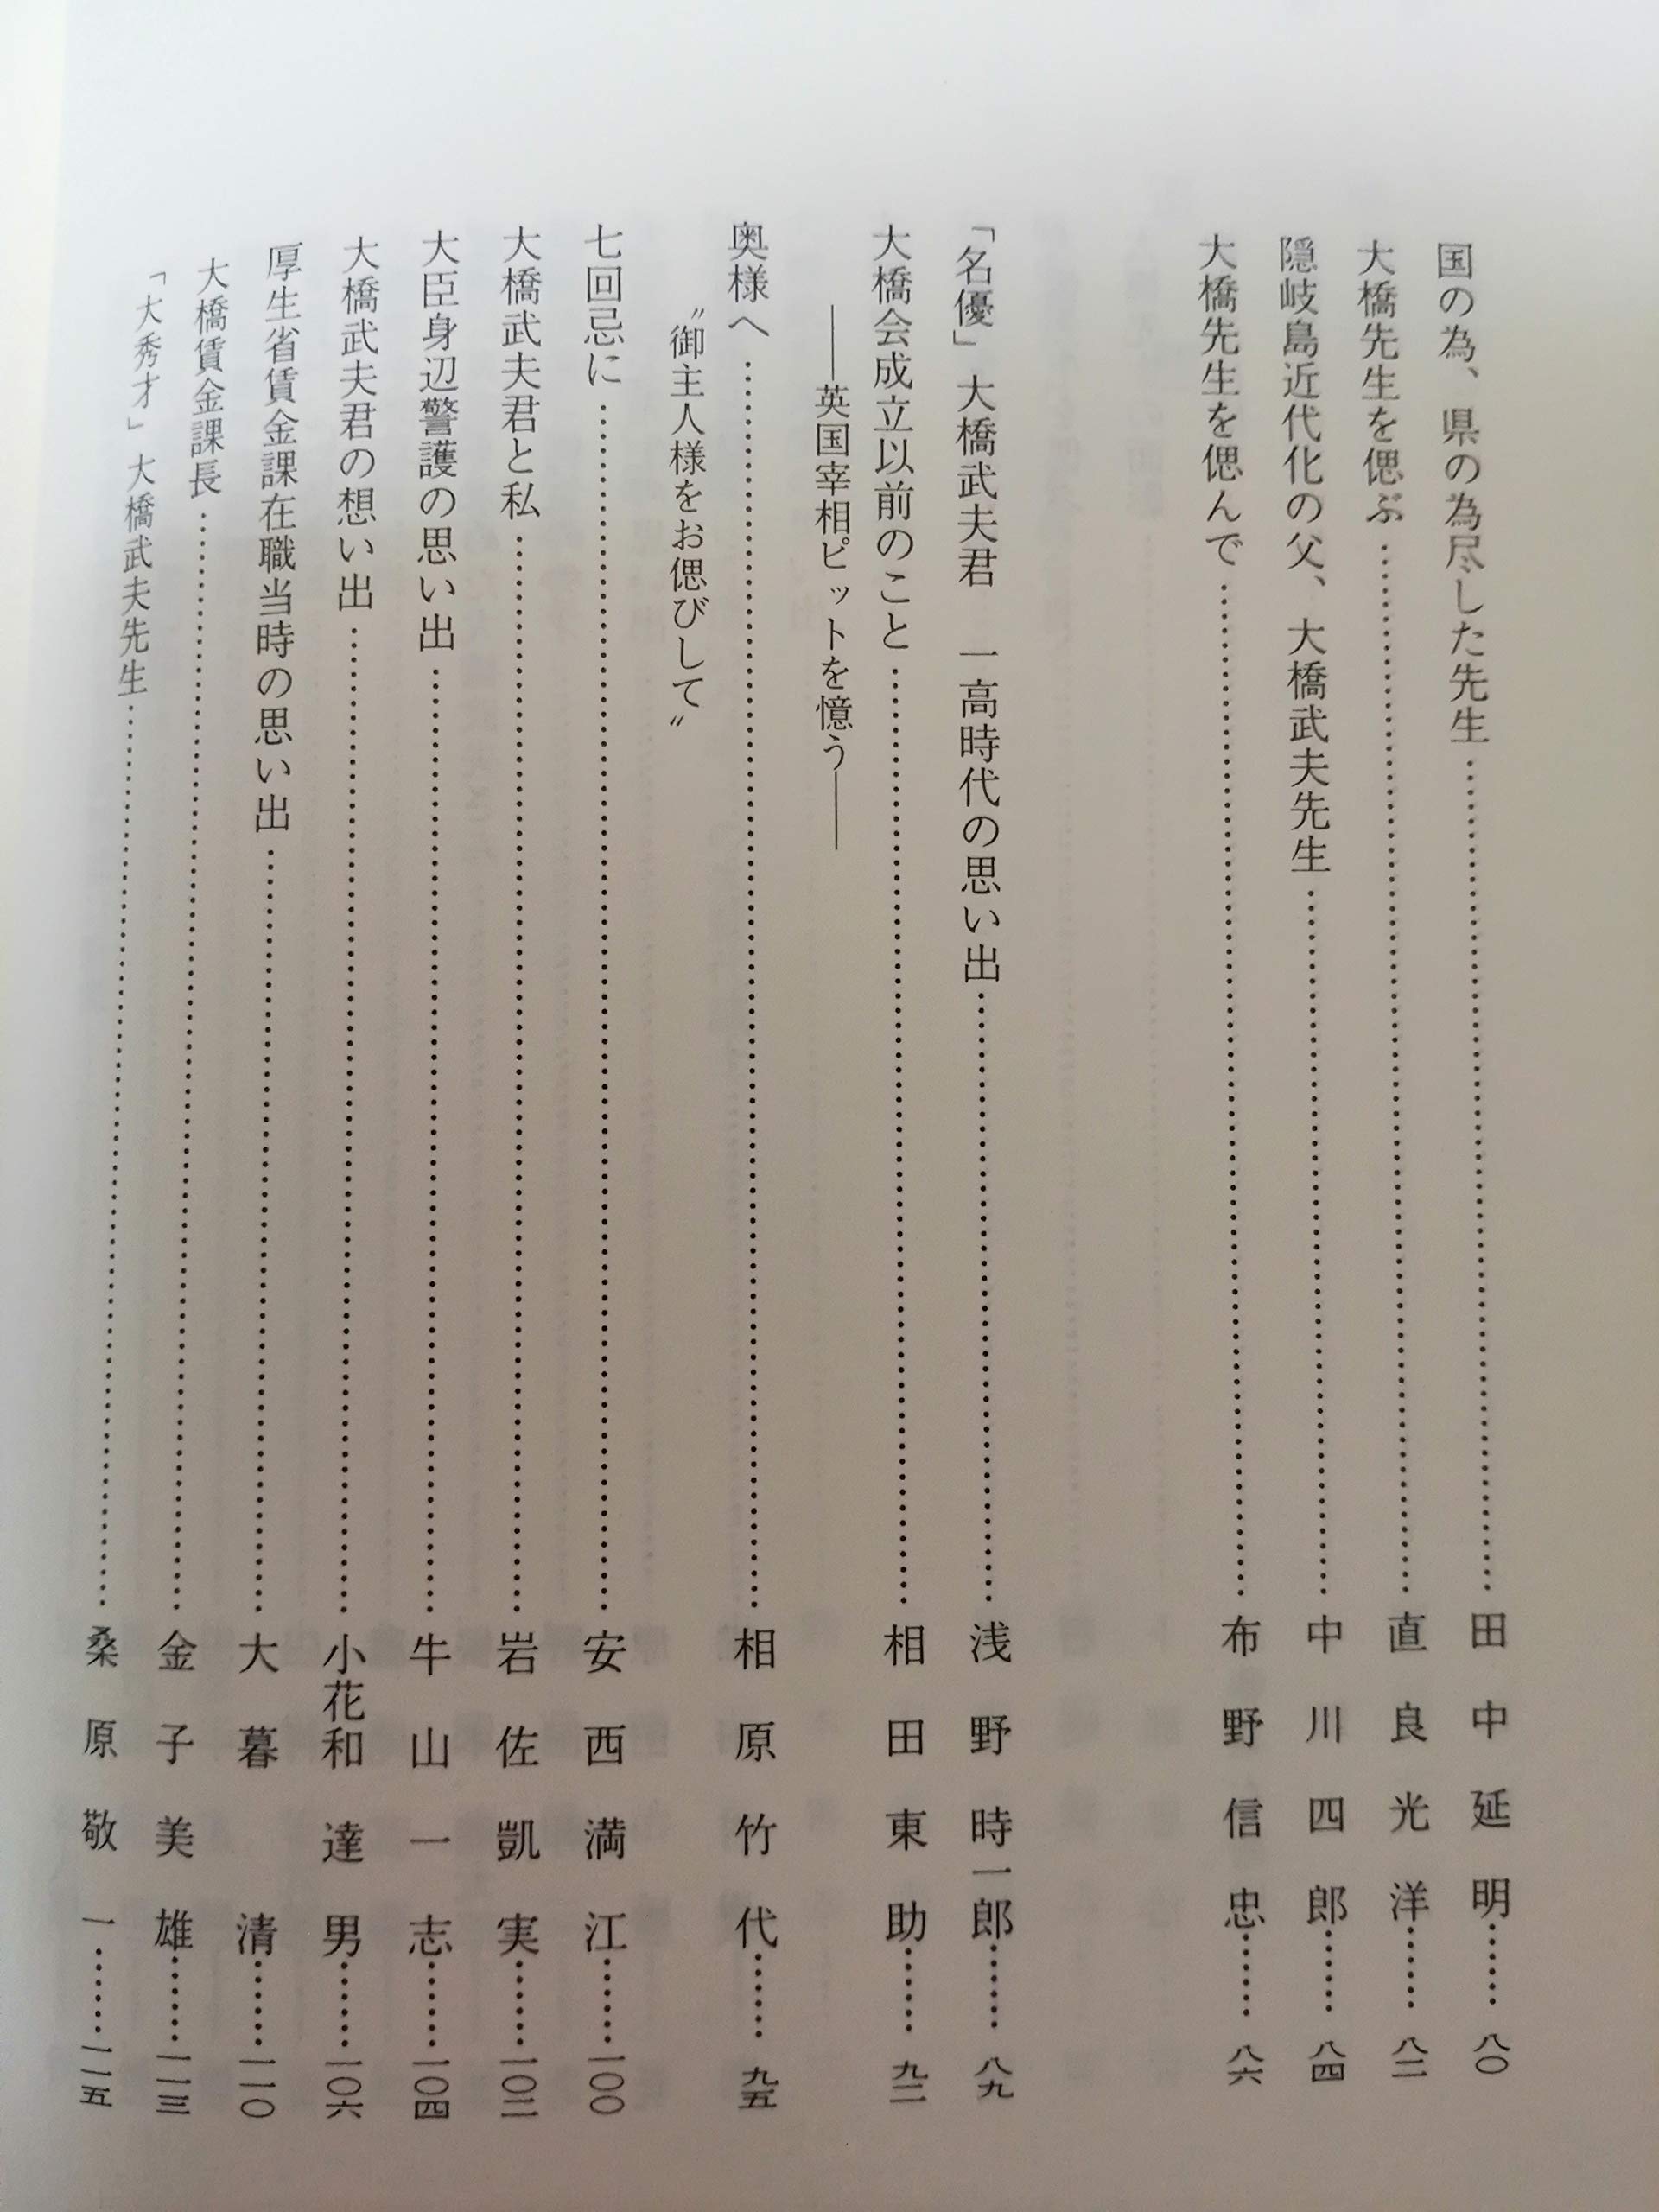 国の為、県の為尽した先生……田中延明……八〇
大橋先生を偲ぶ……直良光洋……八二
隠岐島近代化の父、大橋武夫先生……中川四郎……八四
大橋先生を偲んで……布野信忠……八六
「名優」大橋武夫君　一高時代の思い出……浅野時一郎……八九
大橋会成立以前のこと……相田東助……九二
――英国宰相ピットを憶う――
奥様へ……相原竹代……九五
〝御主人様をお偲びして〟
七回忌に……安西満江……一〇〇
大橋武夫君と私……岩佐凱実……一〇二
大臣身辺警護の思い出……牛山一志……一〇四
大橋武夫君の想い出……小花和達男……一〇六
厚生省賃金課在職当時の思い出……大暮清……一一〇
大橋賃金課長……金子美雄……一一三
「大秀才」大橋武夫先生……桑原敬一……一一五